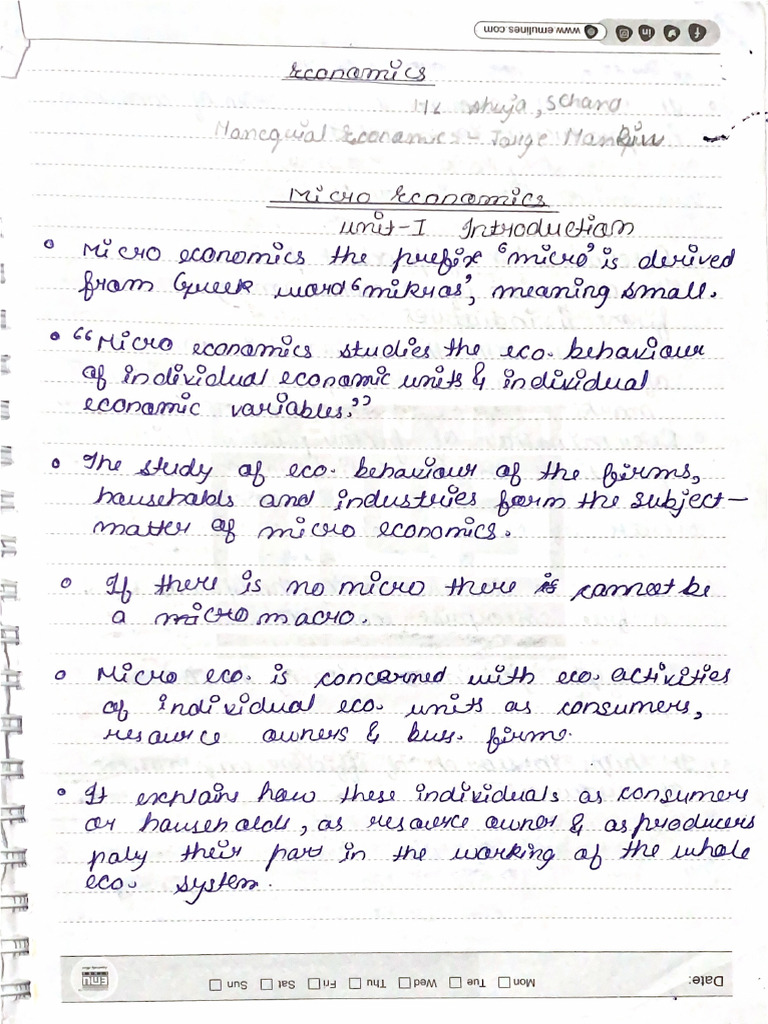 www.emulines.com
Economics
H L Ahuja, Schand
Manequial Economics - Jorge Mankiw
Micro Economics
Unit-I Introduction
Micro economics the prefix 'micro' is derived
from Greek word 'mikros', meaning small.
"Micro economics studies the eco. behaviour
of individual economic units & individual
economic variables."
The study of eco. behaviour of the firms,
households and industries form the subject-
matter of micro economics.
If there is no micro there is cannot be
a micro macro.
Micro eco. is concerned with eco. activities
of individual eco. units as consumers,
resource owners & bus. firms.
It explain how these individuals as consumers
or households, as resource owner & as producers
paly their part in the working of the whole
eco. system.
Date: Mon Tue Wed Thu Fri Sat Sun